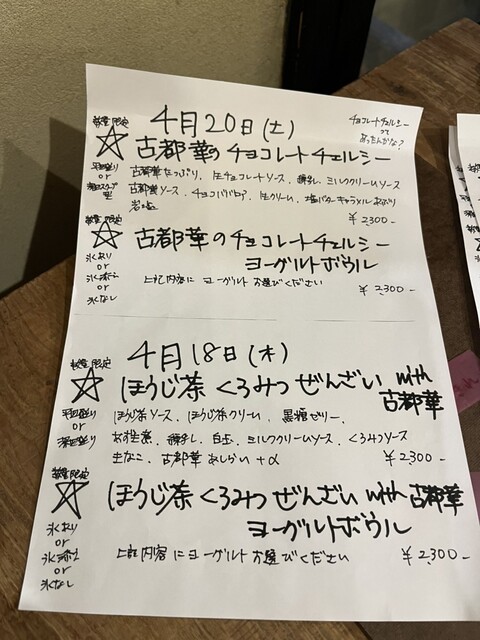 数量限定
4月20日(土)
チョコレートチェルシー
って
あったんかな?
古都華のチョコレートチェルシー
平皿盛り
or
古都華たっぷり、生チョコレートソース、練乳、ミルククリームソース
古都華ソース、チョコバドロア、生クリーム、塩バターキャラメルあおぶり
岩塩
¥2,300-
数量限定
古都華のチョコレートチェルシー
ヨーグルトボウル
氷あり
or
氷添え
or
氷なし
上記内容に ヨーグルト お選びください
¥2,300-
4月18日(木)
数量限定
ほうじ茶 くろみつ ぜんざい with
古都華
平皿盛り
or
ほうじ茶ソース、ほうじ茶クリーム、黒糖ゼリー、
お豆煮、練乳、白玉、ミルククリームソース、くろみつソース
きなこ、古都華あしらい+α
¥2,300-
数量限定
ほうじ茶 くろみつ ぜんざい with 古都華
ヨーグルトボウル
氷あり
or
氷添え
or
氷なし
上記内容に ヨーグルト お選びください
¥2,300-